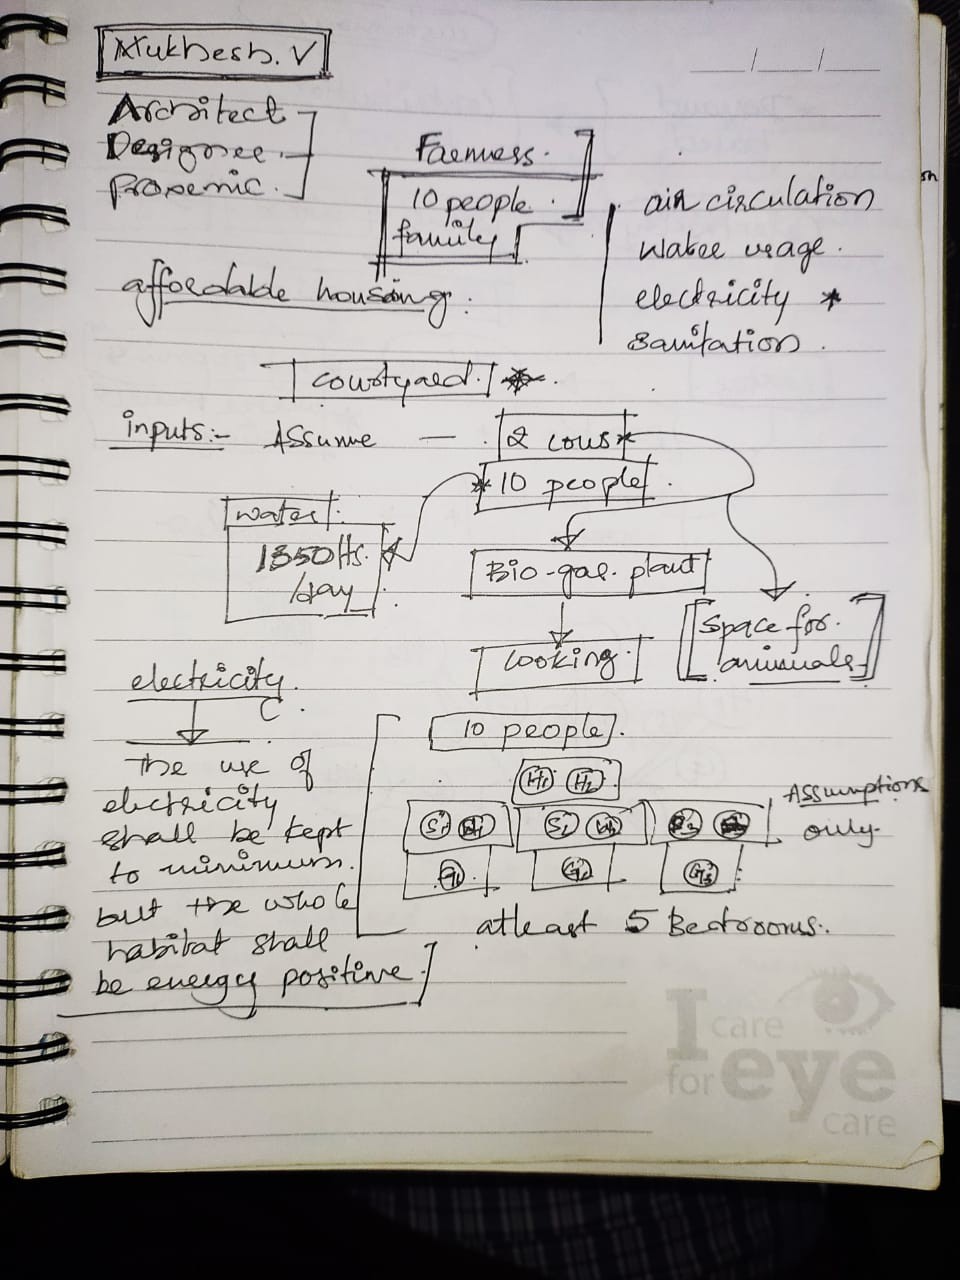 Mukhesh. V
Architect
Designer.
Proxemic.
Farmers.
10 people.
family
affordable housing.
air circulation
water usage.
electricity *
sanitation.
courtyard. *.
inputs:- Assume — 2 cows *
* 10 people.
water:
1350 lts.
/day
Bio-gas plant
cooking.
Space for.
animals
electricity.
The use of
electricity
shall be kept
to minimum.
but the whole
habitat shall
be energy positive.
10 people.
H1 H2
S1 S2
G2 G3
Assumptions
only.
atleast 5 Bedrooms.
I care
for eye
care